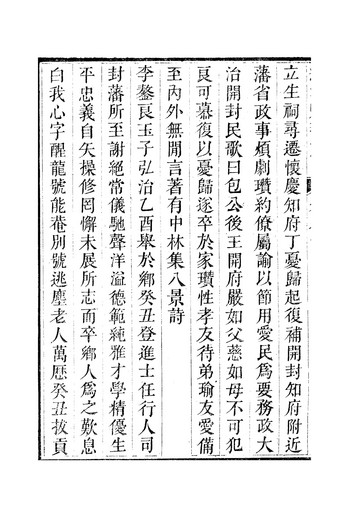 立生祠尋遷懷慶知府丁憂歸起復補開封知府附近
藩省政事煩劇瓚約僚屬諭以節用愛民爲要務政大
治開封民歌曰包公後王開府嚴如父慈如母不可犯
良可慕復以憂歸遂卒於家瓚性孝友待弟瑜友愛備
至內外無閒言著有中林集八景詩
李鏊良玉子弘治乙酉舉於鄉癸丑登進士任行人司
封藩所至謝絕常儀馳聲洋溢德範純雅才學精優生
平忠義自矢操修罔懈未展所志而卒鄉人爲之歎息
白我心字醒龍號能菴別號逃塵老人萬厯癸丑拔貢